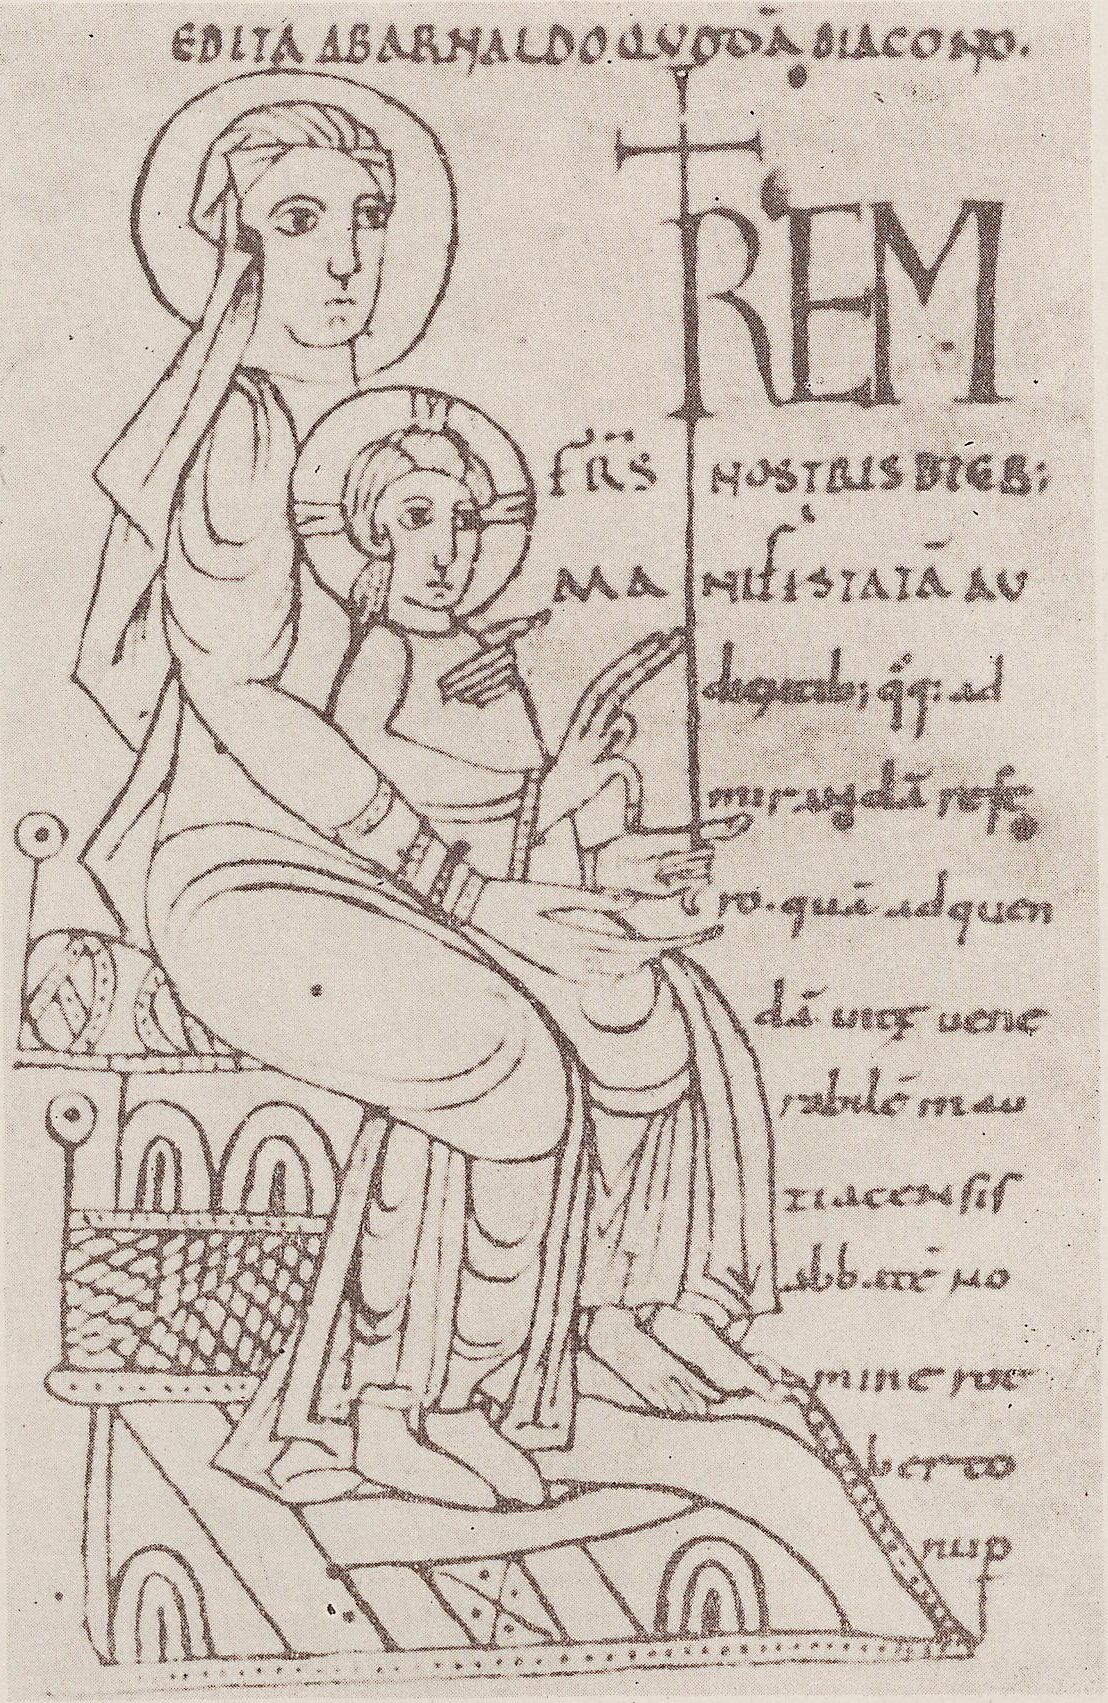 EDITA AB ARNALDO QUODĀ DIACONO.
REM
FRS NOSTRIS DIEB;
MANIFESTATĀ AU
dientib; q̇q; ad
mirandā refe
ro. quā ad quen
dā uitę uene
rabilē mau
ziacensis
abbatē no
mine rot
berto
nup